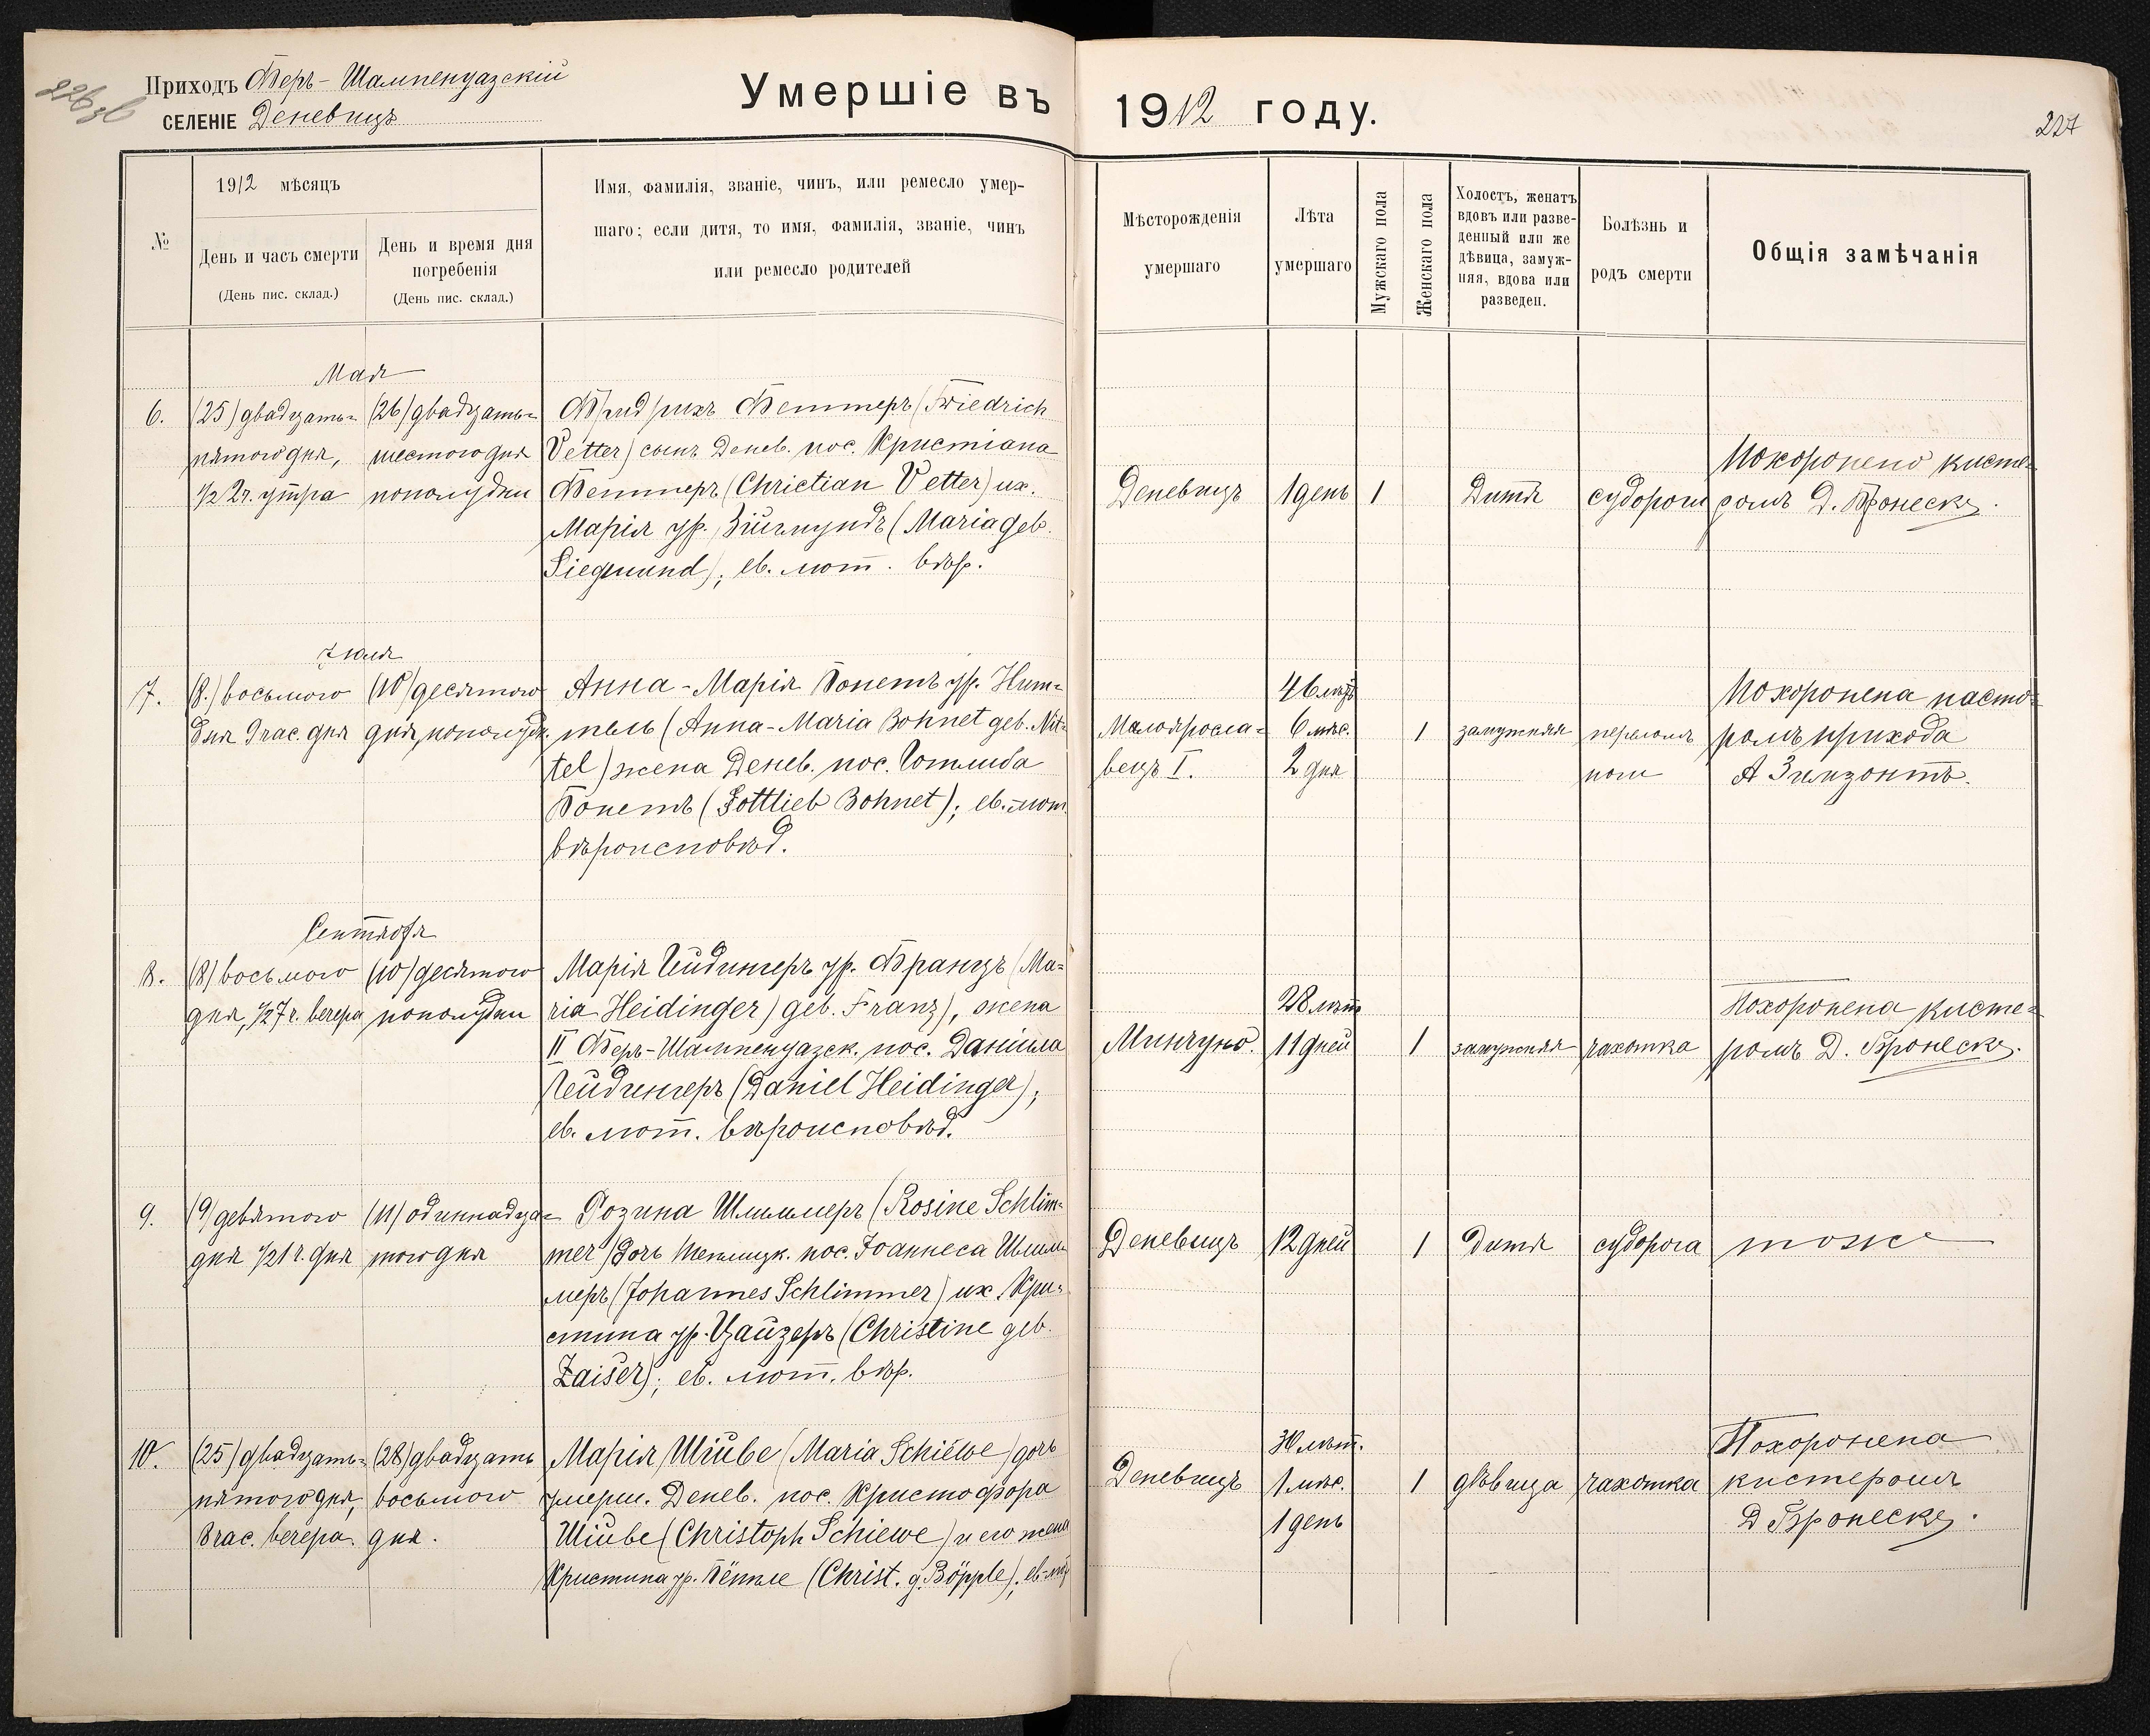 226 об
Приходъ Феръ-Шампенуазскій
СЕЛЕНІЕ Деневицъ
Умершіе въ 1912 году.
227
№
1912 мѣсяцъ
День и часъ смерти
(День пис. склад.)
День и время дня
погребенія
(День пис. склад.)
Имя, фамилія, званіе, чинъ, или ремесло умер-
шаго; если дитя, то имя, фамилія, званіе, чинъ
или ремесло родителей
Мѣсторожденія
умершаго
Лѣта
умершаго
Мужскаго пола
Женскаго пола
Холостъ, женатъ
вдовъ или разве-
денный или же
дѣвица, замуж-
няя, вдова или
разведен.
Болѣзнь и
родъ смерти
Общія замѣчанія
Мая
6.
(25) двадцать-
пятого дня,
1/2 2 ч. утра
(26) двадцать-
шестого дня
пополудни
Фридрихъ Феттеръ (Friedrich
Vetter) сынъ Денев. пос. Кристіана
Феттеръ (Christian Vetter) их.
Марія ур. Зигмундъ (Maria geb.
Siegmund); ев. лют. вѣр.
Деневицъ
1 день
1
Дитя
судороги
Похоронено кисте-
ромъ Д. Бронеске.
Іюля
7.
(8.) восьмого
дня 9 час. дня
(10) десятого
дня, пополудн.
Анна-Марія Бонетъ ур. Нит-
тель (Anna-Maria Bohnet geb. Nit-
tel) жена Денев. пос. Готлиба
Бонетъ (Gottlieb Bohnet); ев.-лют.
вѣроисповѣд.
Малояросла-
вецъ I.
46 лѣтъ
6 мѣс.
2 дня
1
замужняя
переломъ
ноги
Похоронена пасто-
ромъ прихода
А Зимзонтъ.
Сентября
8.
(8) восьмого
дня, 1/2 7 ч. вечера
(10) десятого
пополудни
Марія Гейдингеръ ур. Францъ (Ma-
ria Heidinger) geb. Franz), жена
II Феръ-Шампенуазск. пос. Даніила
Гейдингеръ (Daniel Heidinger);
ев. лют. вѣроисповѣд.
Минчуно.
28 лѣтъ
11 дней
1
замужняя
чахотка
Похоронена кисте-
ромъ Д. Бронеске.
9.
(9) девятого
дня 1/2 1 ч. дня
(11) одиннадца-
того дня
Розина Шлиммеръ (Rosine Schlim-
mer) дочь Теплицк. пос. Іоаннеса Шлим-
меръ (Johannes Schlimmer) их. Кри-
стина ур. Цайзеръ (Christine geb.
Zaiser); ев. лют. вѣр.
Деневицъ
12 дней
1
Дитя
судорога
тоже
10.
(25) двадцать-
пятого дня,
8 час. вечера.
(28) двадцать
восьмого
дня.
Марія Шиве (Maria Schiewe) дочь
умерш. Денев. пос. Кристофора
Шиве (Christoph Schiewe) и его жена
Кристина ур. Бёппле (Christ. g. Böpple); ев.-лют
Деневицъ
30 лѣт.
1 мѣс.
1 день
1
дѣвица
чахотка
Похоронена
кистеромъ
Д Бронеске.